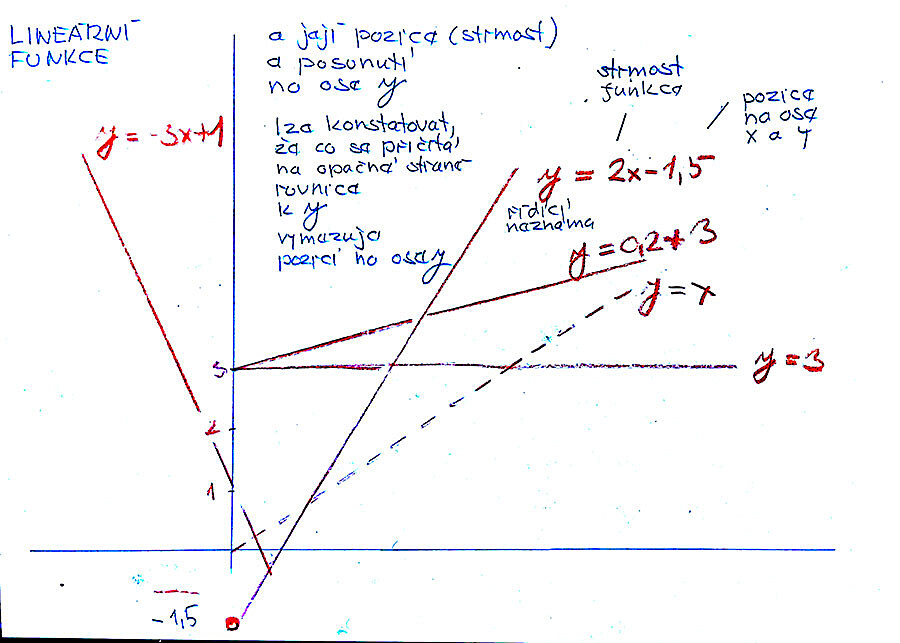 LINEÁRNÍ
FUNKCE
a jají pozica (strmost)
a posonutí
no osa y
lza konstatovat,
ža co sa přičítá
na opačná straně
rovnica
k y
vymazuja
pozici no osay
strmost
funkca
pozica
na osa
x a y
y = -3x+1
y = 2x-1,5
řídící
naznama
y = 0,2+3
y = x
y = 3
3
2
1
-1,5